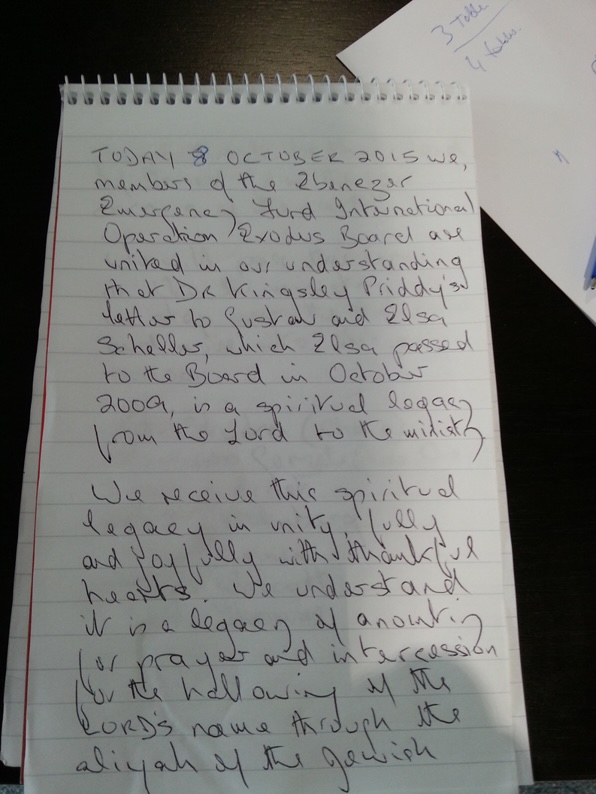 3 Table
4 tables
TODAY 8 OCTOBER 2015 we,
members of the Ebenezer
Emergency Fund International
Operation Exodus Board are
united in our understanding
that DR Kingsley Priddy's
letter to Gustav and Elsa
Scheller, which Elsa passed
to the Board in October
2009, is a spiritual legacy
from the Lord to the ministry
We receive this spiritual
legacy in unity, fully
and joyfully with thankful
hearts. We understand
it is a legacy of anointing
for prayer and intercession
for the hallowing of the
LORD's name through the
aliyah of the Jewish